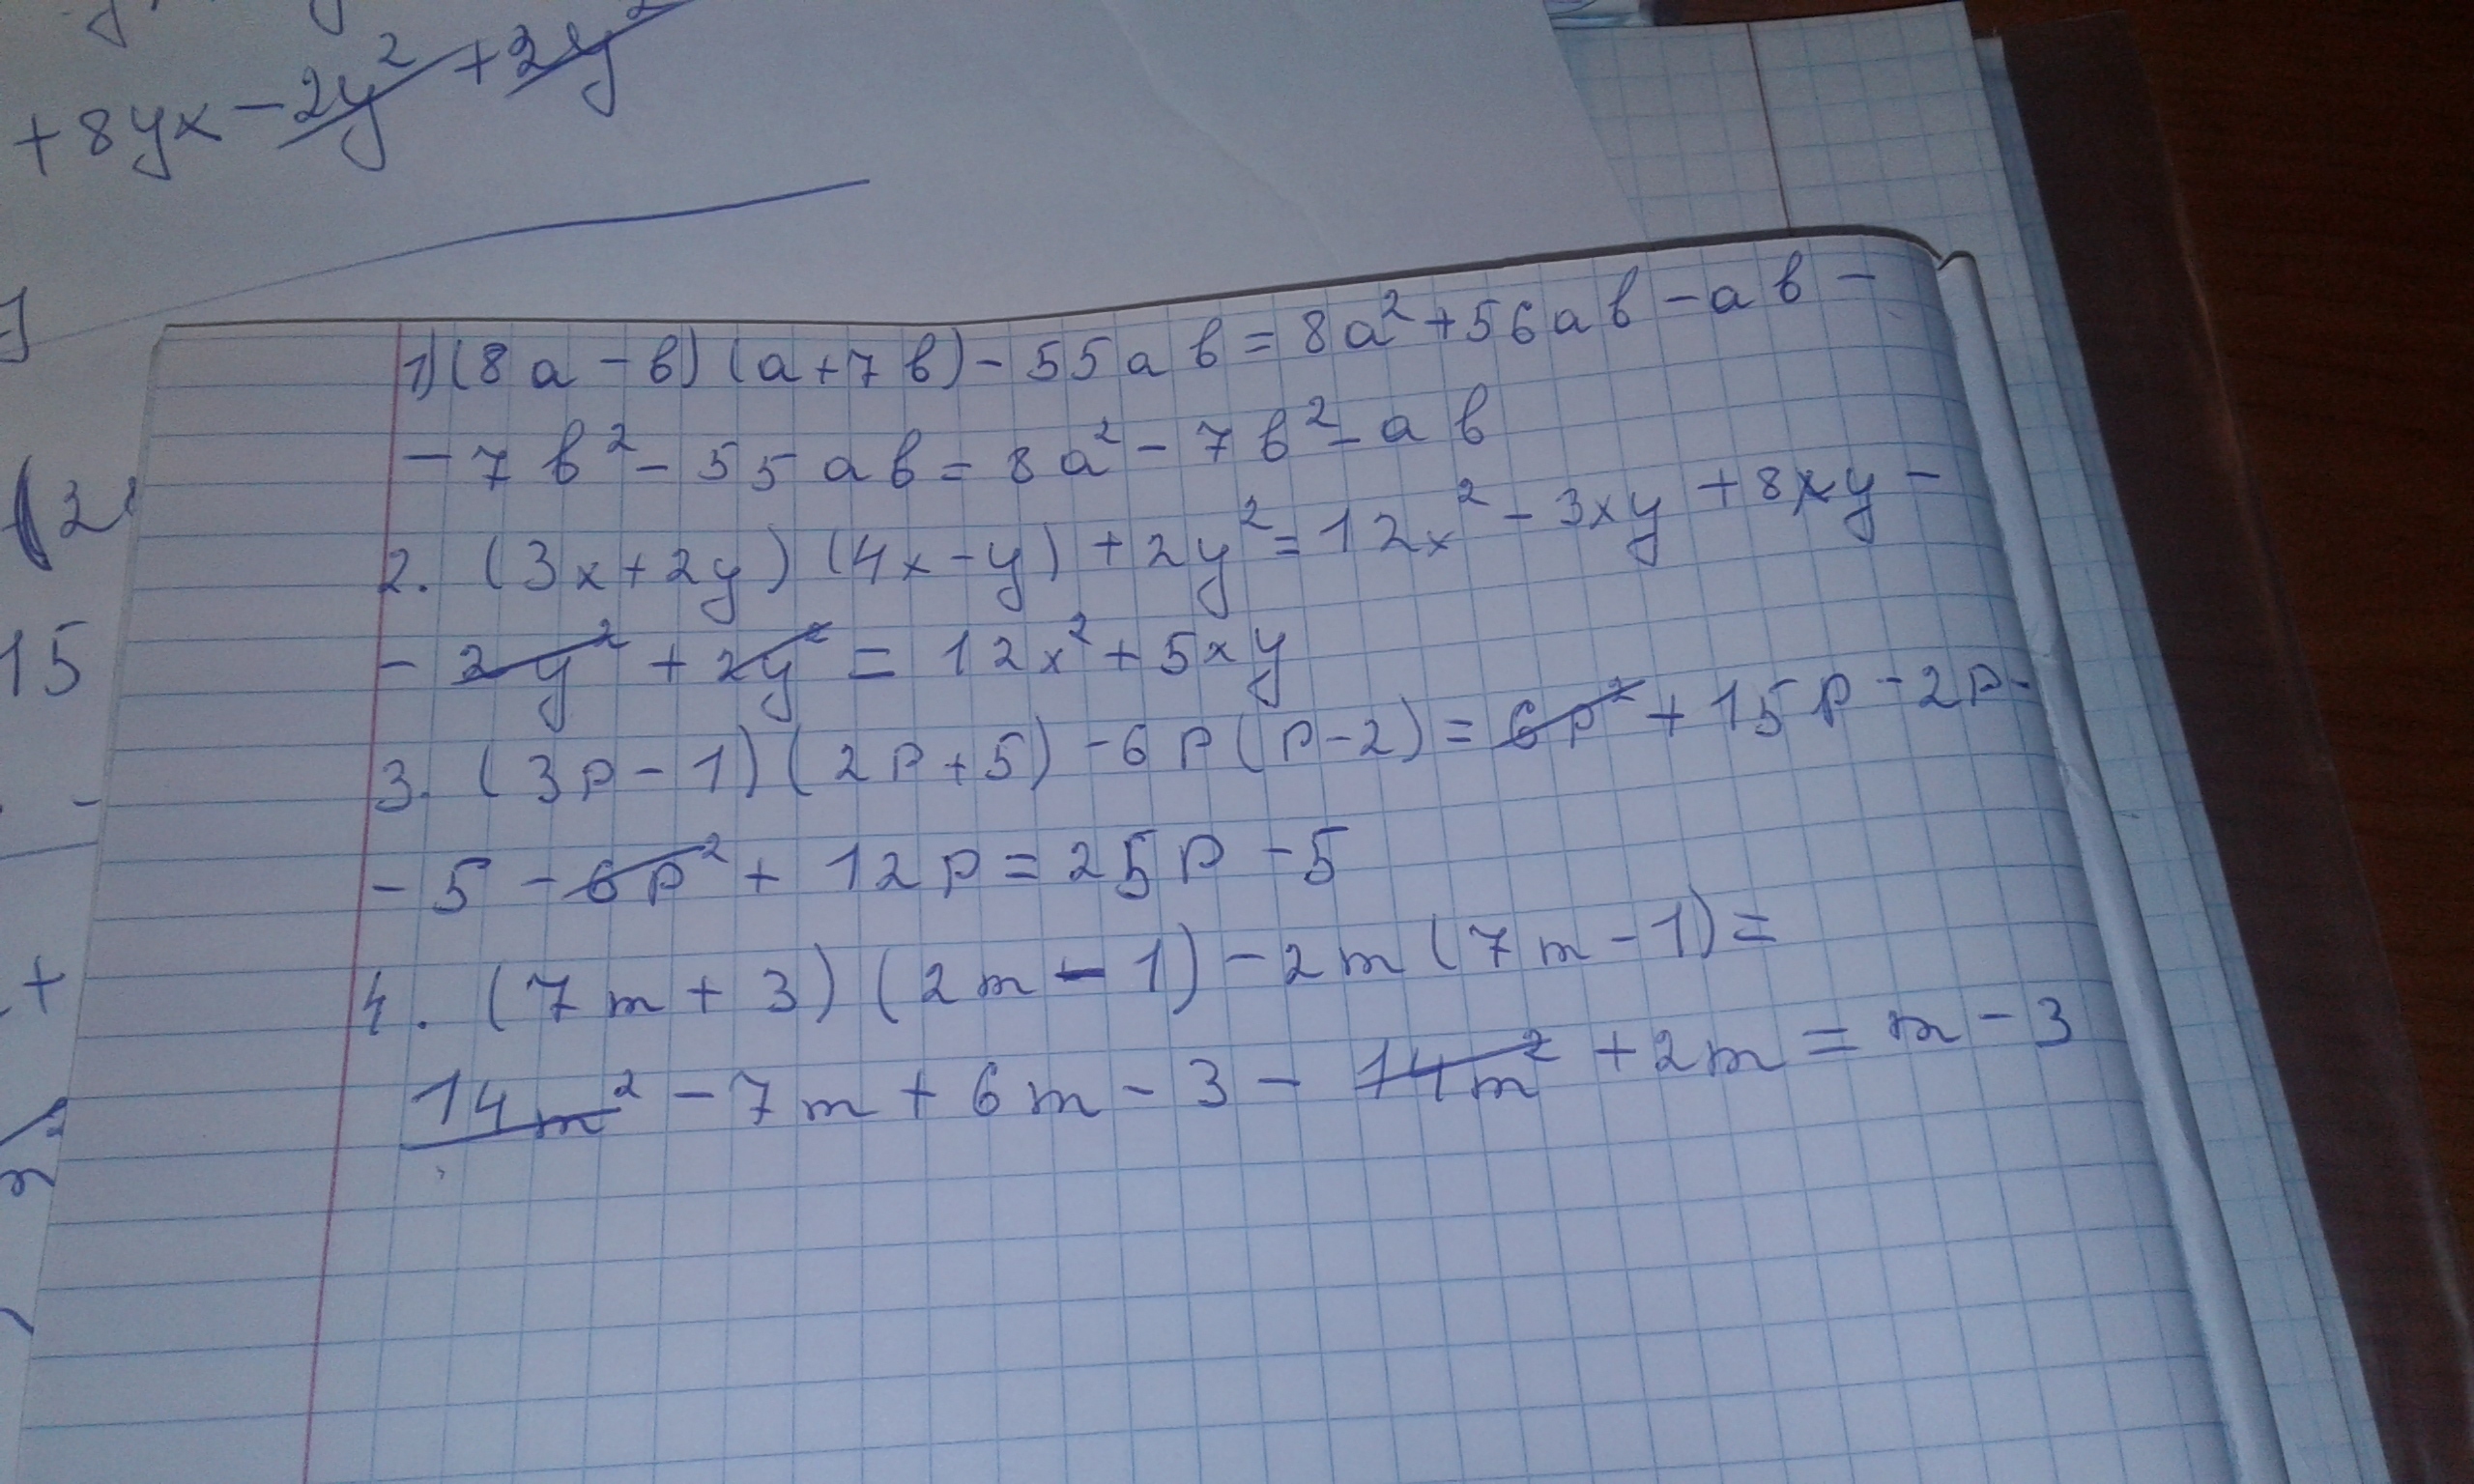 +8yx-2y²+2y²
1)(8a-b)(a+7b)-55ab=8a²+56ab-ab-
-7b²-55ab=8a²-7b²-ab
2. (3x+2y)(4x-y)+2y²=12x²-3xy+8xy-
-2y²+2y²=12x²+5xy
3. (3p-1)(2p+5)-6p(p-2)=6p²+15p-2p-
-5-6p²+12p=25p-5
4. (7m+3)(2m-1)-2m(7m-1)=
14m²-7m+6m-3-14m²+2m=m-3
15
+